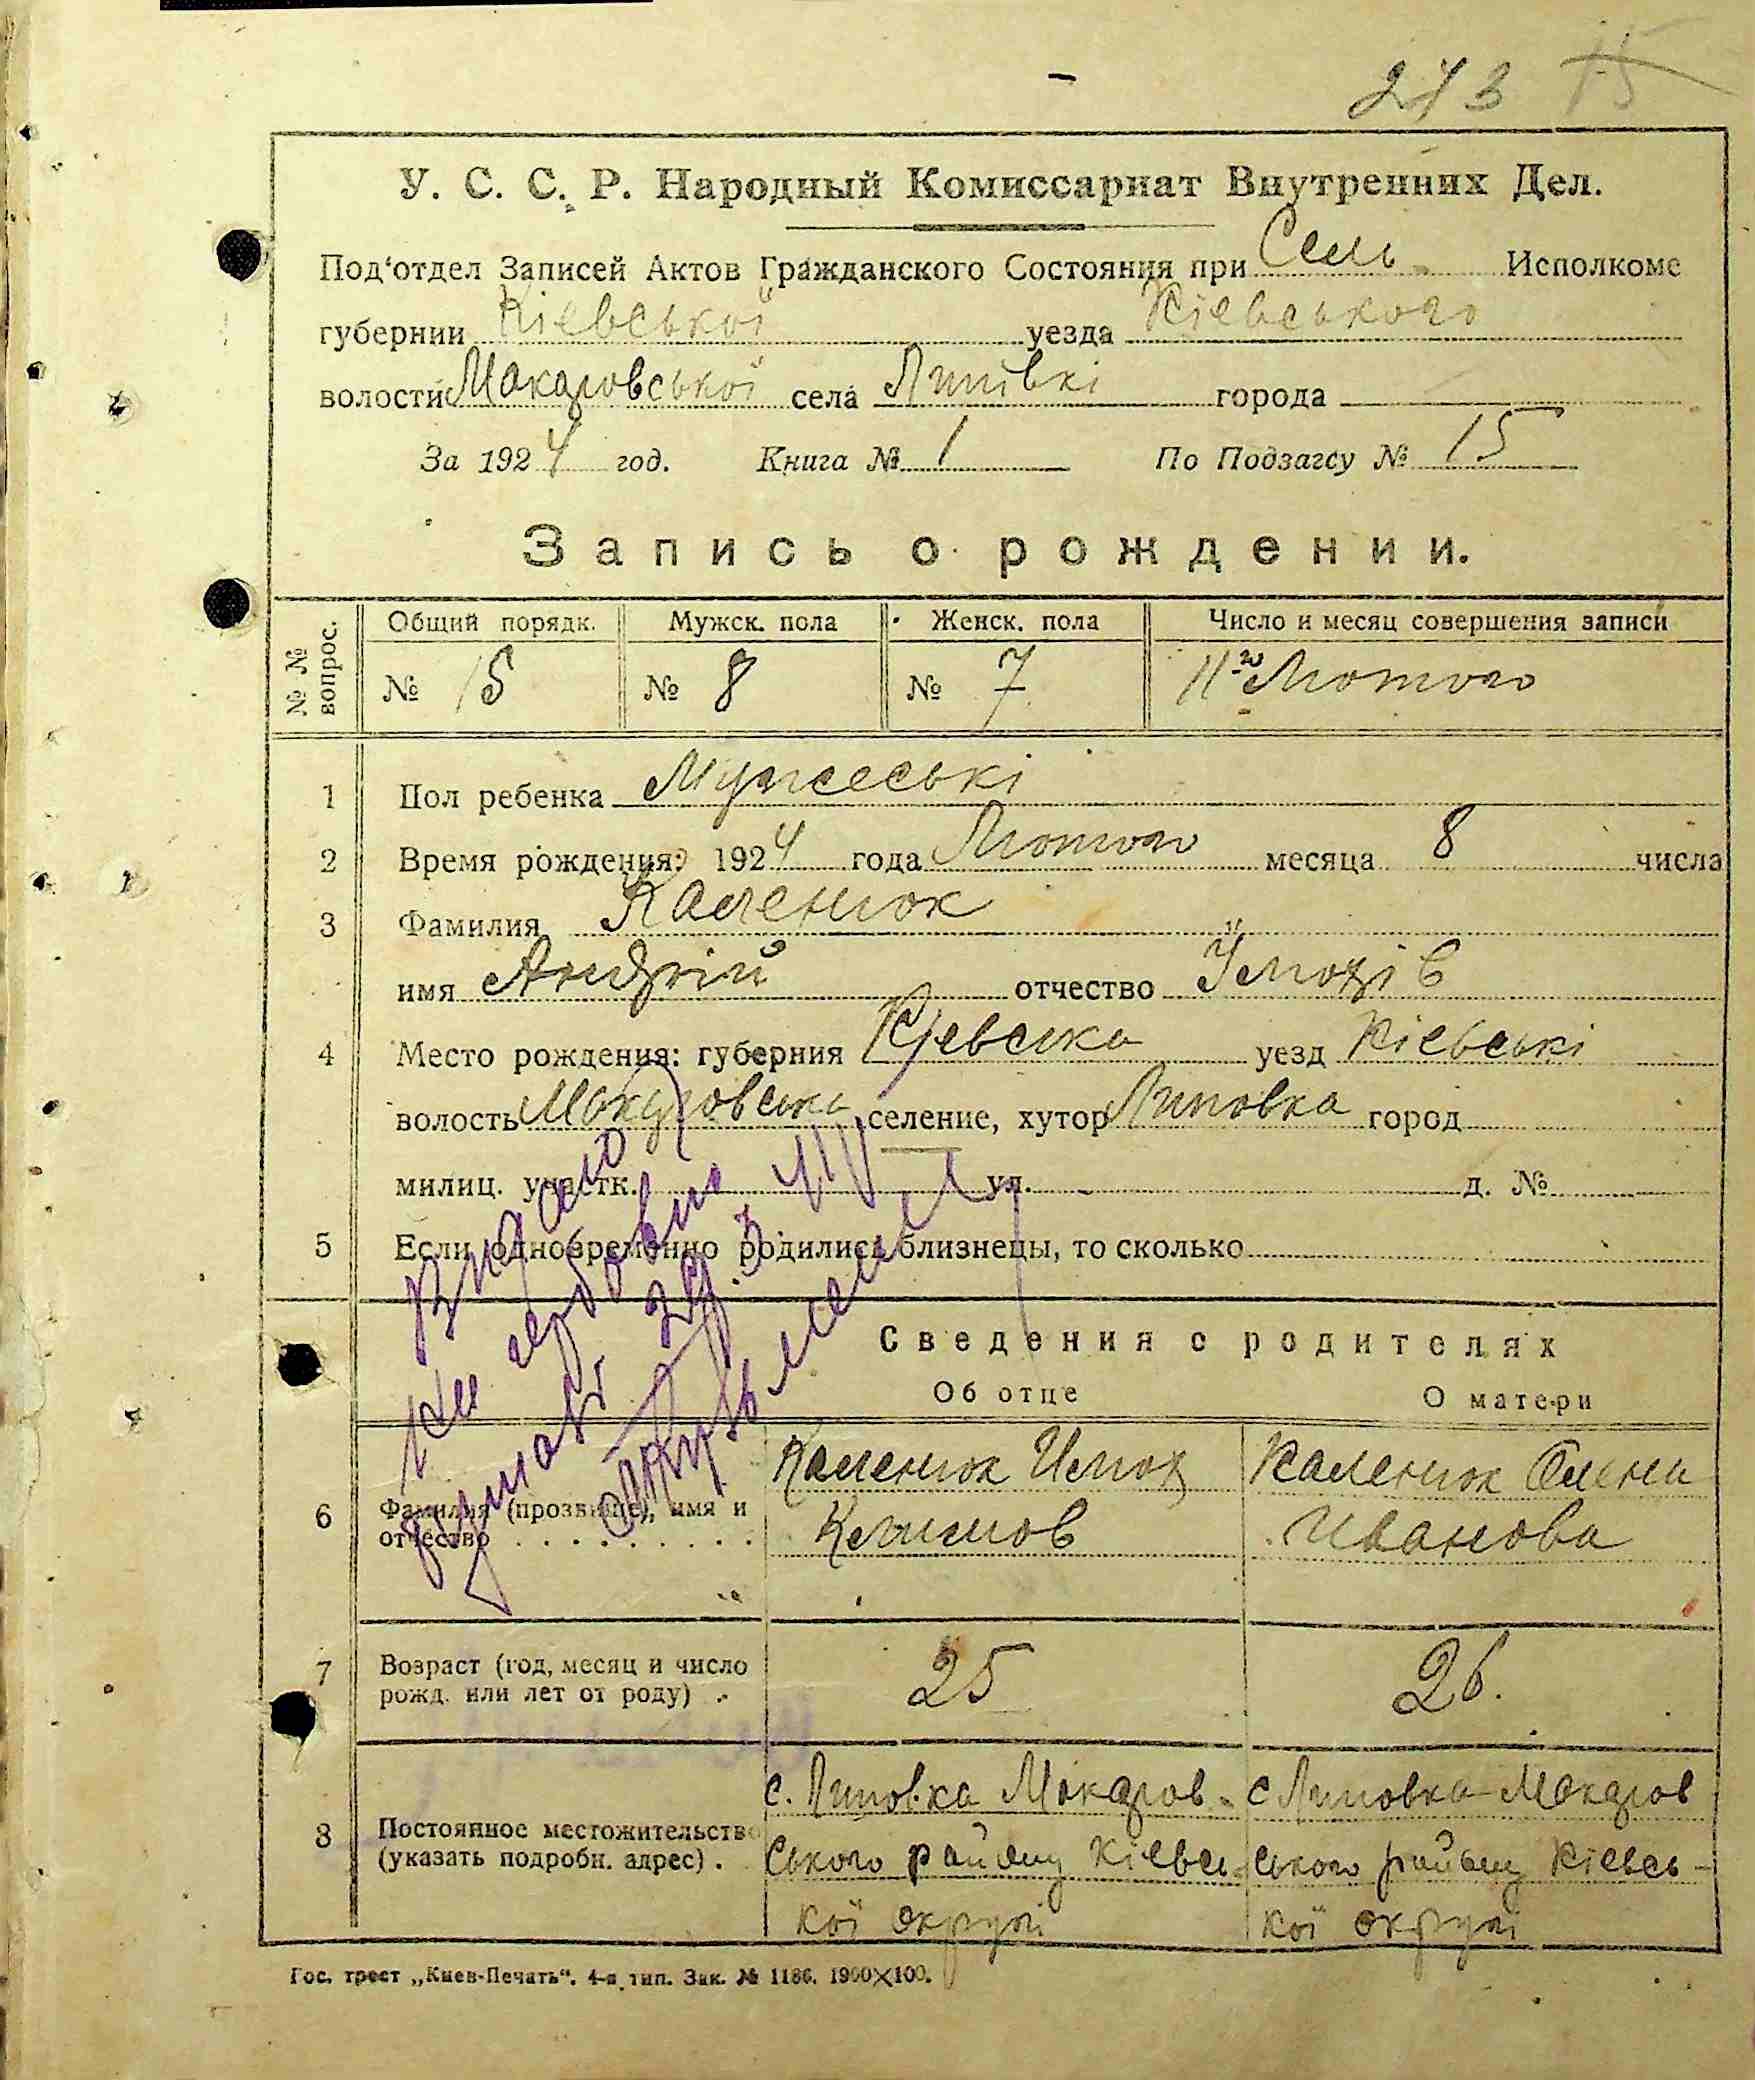 243 15
У. С. С. Р. Народный Комиссариат Внутренних Дел.
Под'отдел Записей Актов Гражданского Состояния при Сель Исполкоме
губернии Кіевської уезда Кіевського
волости Макаровської села Липівкі города
За 1924 год. Книга № 1 По Подзагсу № 15
Запись о рождении.
№ № вопрос. Общий порядк. Мужск. пола Женск. пола Число и месяц совершения записи
№ 15 № 8 № 7 11го Лютого
1 Пол ребенка Мужеські
2 Время рождения: 1924 года Лютого месяца 8 числа
3 Фамилия Каленюк
имя Андрій отчество
4 Место рождения: губерния Кіевска уезд Кіевські
волость Макаровська селение, хутор Липовка город
милиц. участк. ул. д. №
5 Если одновременно родились близнецы, то сколько
Сведения о родителях
Об отце О матери
6 Фамилия (прозвище), имя и Каленюк Каленюк Олена
отчество Климов Иванова
7 Возраст (год, месяц и число 25 26.
рожд. или лет от роду)
8 с. Липовка Макаров- с Липовка Макаров
Постоянное местожительство
(указать подробн. адрес). ського району Кіевсь- ського району Кіевсь-
кої округі кої округі
Видано
Гос. трест „Киев-Печать“. 4-я тип. Зак. № 1186. 1900×100.